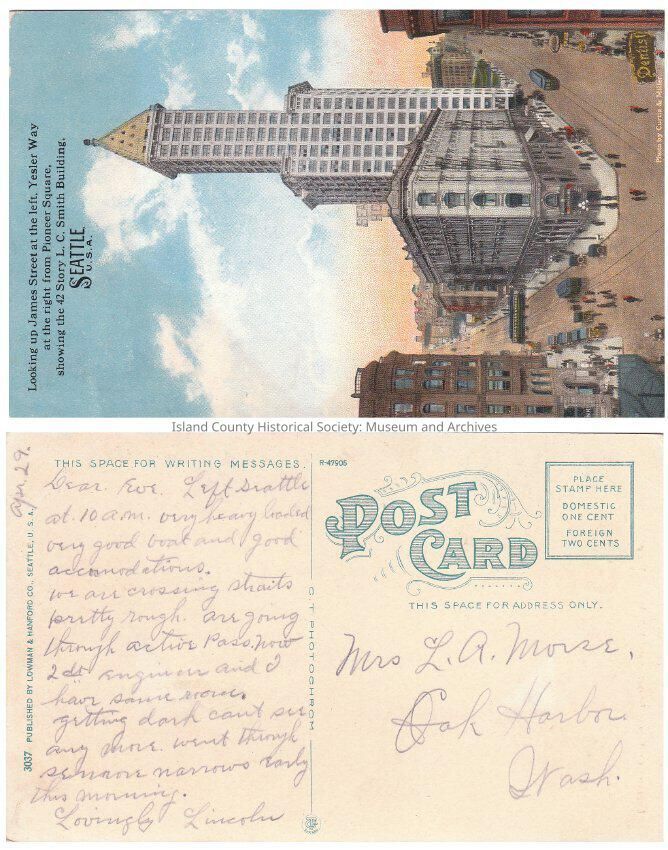 Looking up James Street at the left, Yesler Way
at the right from Pioneer Square,
showing the 42 Story L. C. Smith Building.
SEATTLE
U.S.A.
Dentist
Photo by Curtis & Miller
Island County Historical Society: Museum and Archives
Apr. 29.
THIS SPACE FOR WRITING MESSAGES.
Dear. Eve. Left Seattle
at. 10 a.m. very heavy loaded
very good boat and good
accomodations.
we are crossing straits
pretty rough. are going
through active Pass. now
2d engineer and I
have same room.
getting dark cant see
any more. went through
narrows early
this morning.
Lovingly Lincoln
3037 PUBLISHED BY LOWMAN & HANFORD CO., SEATTLE, U. S. A.
C T PHOTOCHROM
R-47906
POST
CARD
PLACE
STAMP HERE
DOMESTIC
ONE CENT
FOREIGN
TWO CENTS
THIS SPACE FOR ADDRESS ONLY.
Mrs L. A. Morse,
Oak Harbor
Wash.